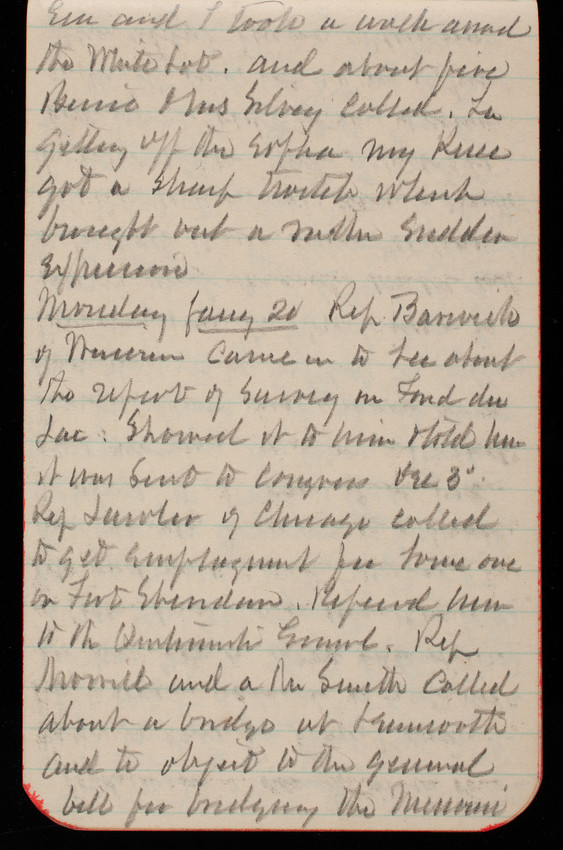 Em and I took a walk around
the White Lot. and about five
Bernie & Mrs Silvey called. In
getting off the sofa my knee
got a sharp twitch which
brought out a rather sudden
expression
Monday Jany 20 Rep Barwick
of Wisconsin came in to see about
the report of survey on Fond du
Lac. Showed it to him & told him
it was sent to Congress Dec 3d.
Rep Lawler of Chicago called
to get employment for some one
on Fort Sheridan. Referred him
to the Quartermaster General. Rep
Morrill and a Mr Smith called
about a bridge at Leavenworth
and to object to the general
bill for bridging the Missouri